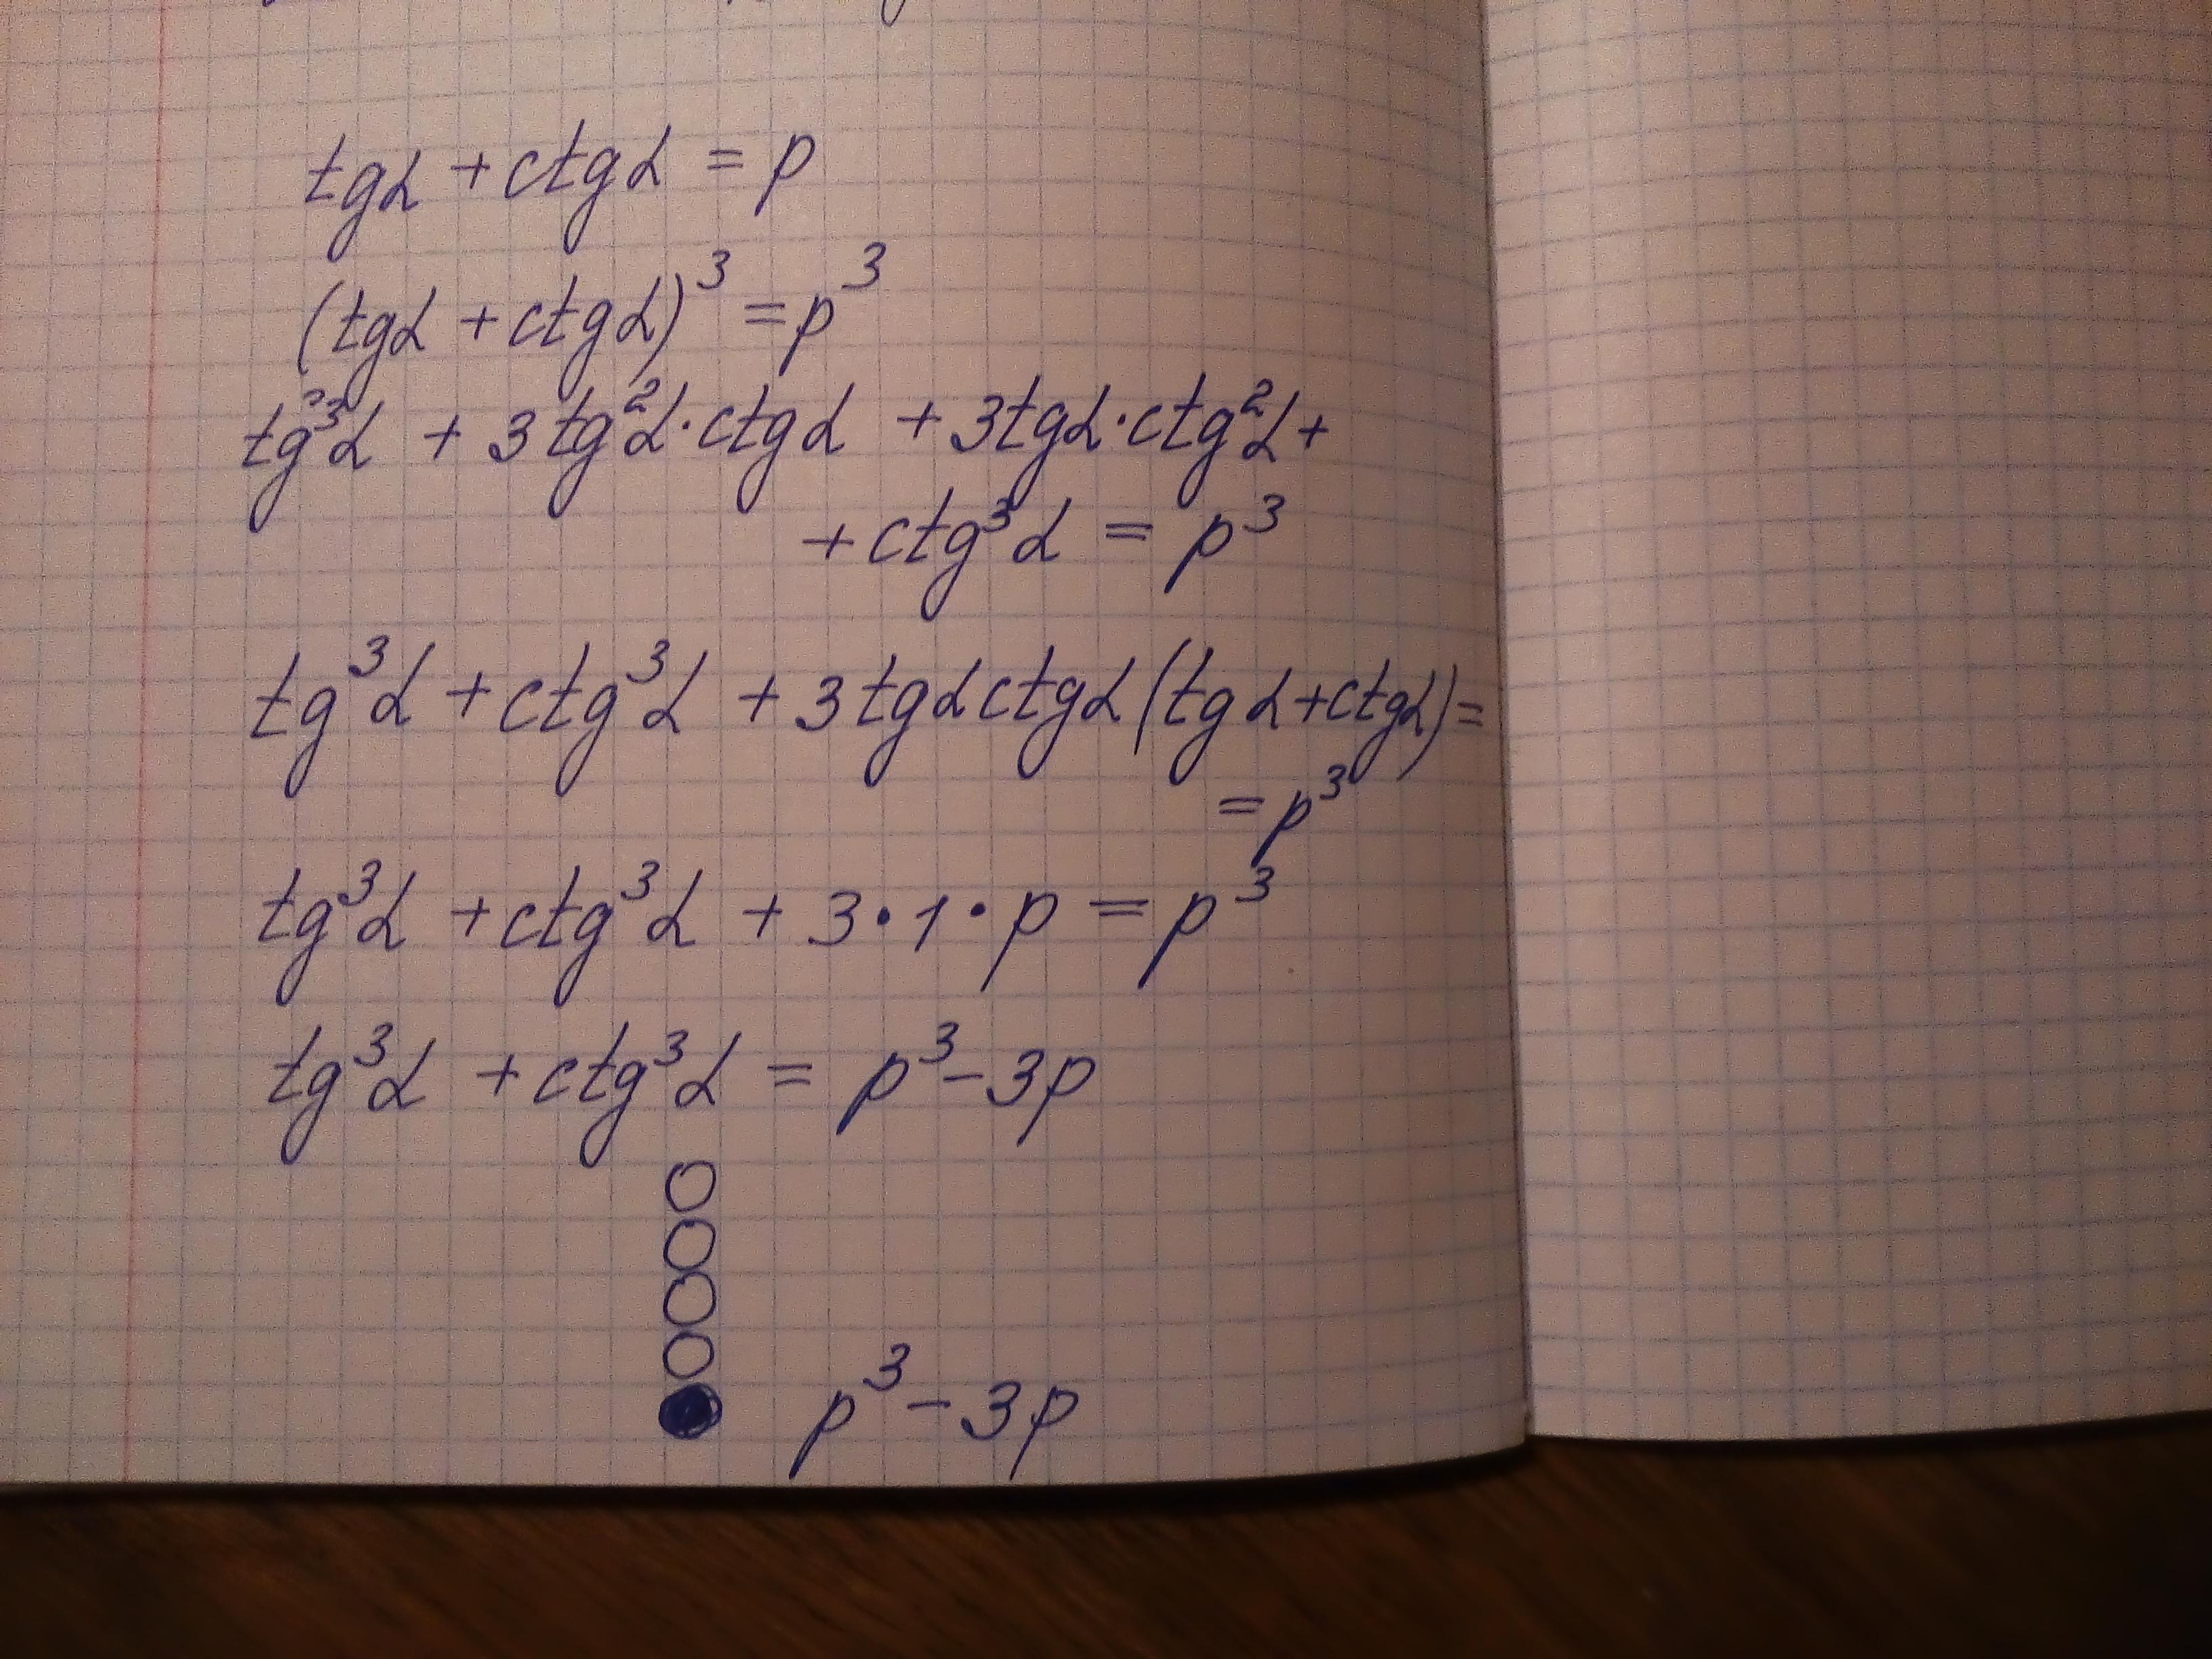 tgα + ctgα = p
(tgα + ctgα)³ = p³
tg³α + 3tg²α·ctgα + 3tgα·ctg²α +
+ ctg³α = p³
tg³α + ctg³α + 3tgαctgα(tgα+ctgα) =
= p³
tg³α + ctg³α + 3·1·p = p³
tg³α + ctg³α = p³-3p
p³-3p